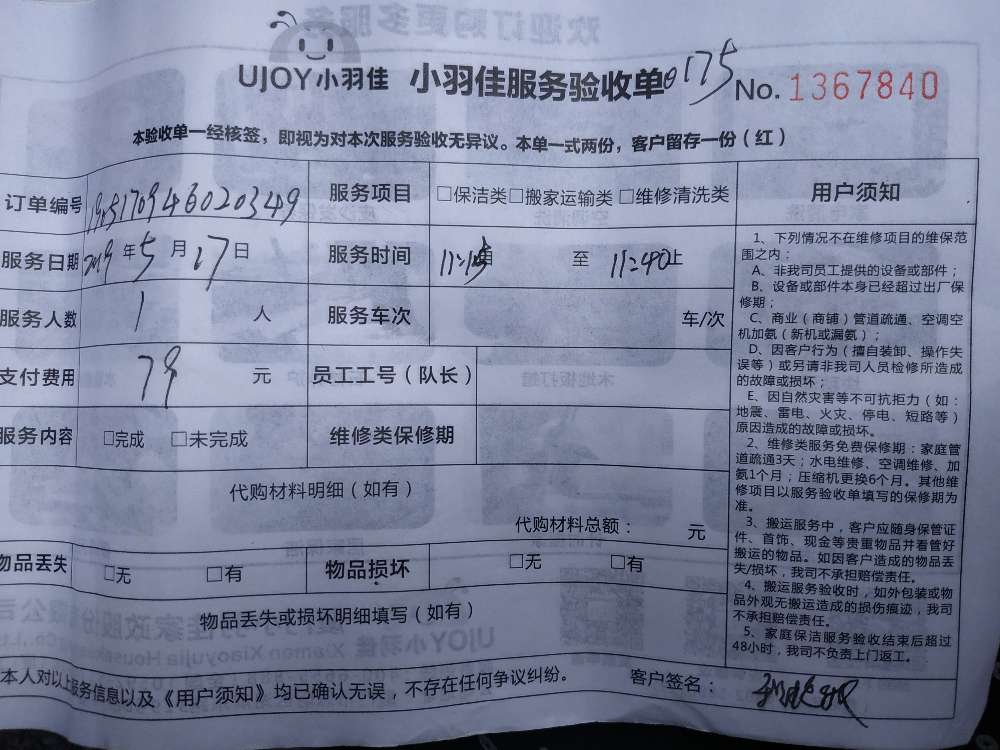 UJOY小羽佳 小羽佳服务验收单 0175 No. 1367840
本验收单一经核签，即视为对本次服务验收无异议。本单一式两份，客户留存一份（红）
订单编号 服务项目 □保洁类□搬家运输类 □维修清洗类 用户须知
服务日期 2019年5月17日 服务时间 至 11:40止
服务人数 1 人 服务车次 车/次
支付费用 79 元 员工工号（队长）
服务内容 □完成 □未完成 维修类保修期
代购材料明细（如有）
代购材料总额： 元
物品丢失 □无 □有 物品损坏 □无 □有
物品丢失或损坏明细填写（如有）
本人对以上服务信息以及《用户须知》均已确认无误，不存在任何争议纠纷。 客户签名：
1、下列情况不在维修项目的维保范
围之内：
A、非我司员工提供的设备或部件；
B、设备或部件本身已经超过出厂保
修期；
C、商业（商铺）管道疏通、空调空
机加氨（新机或漏氨）；
D、因客户行为（擅自装卸、操作失
误等）或另请非我司人员检修所造成
的故障或损坏；
E、因自然灾害等不可抗拒力（如：
地震、雷电、火灾、停电、短路等）
原因造成的故障或损坏。
2、维修类服务免费保修期：家庭管
道疏通3天；水电维修、空调维修、加
氨1个月；压缩机更换6个月。其他维
修项目以服务验收单填写的保修期为
准。
3、搬运服务中，客户应随身保管证
件、首饰、现金等贵重物品并看管好
搬运的物品。如因客户造成的物品丢
失/损坏，我司不承担赔偿责任。
4、搬运服务验收时，如外包装或物
品外观无搬运造成的损伤痕迹，我司
不承担赔偿责任。
5、家庭保洁服务验收结束后超过
48小时，我司不负责上门返工。